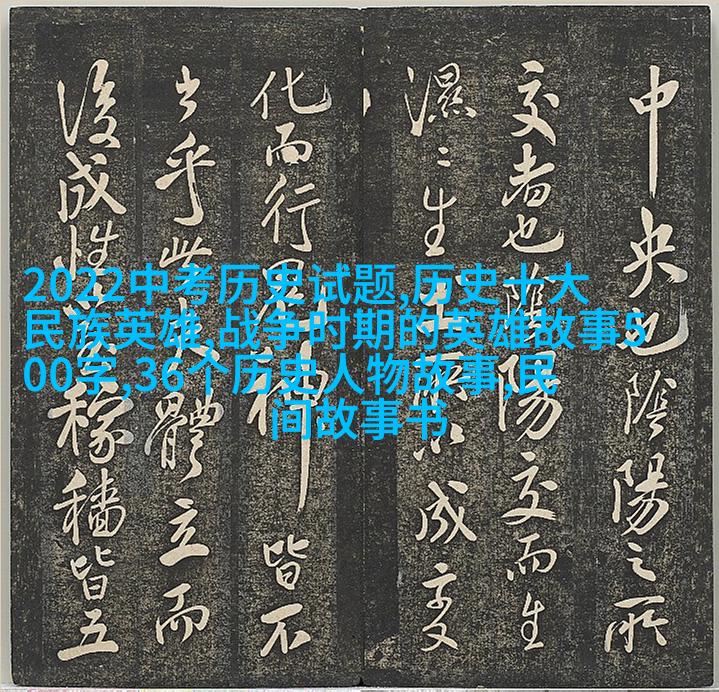 2022中考历史试题,历史十大
民族英雄,战争时期的英雄故事5
00字,36个历史人物故事,民
间故事书
中央也陰陽之所
交者也陰陽交而生
濕〻生土成变
化而行神皆不
乎此夫體立而
後成性稼穡皆五